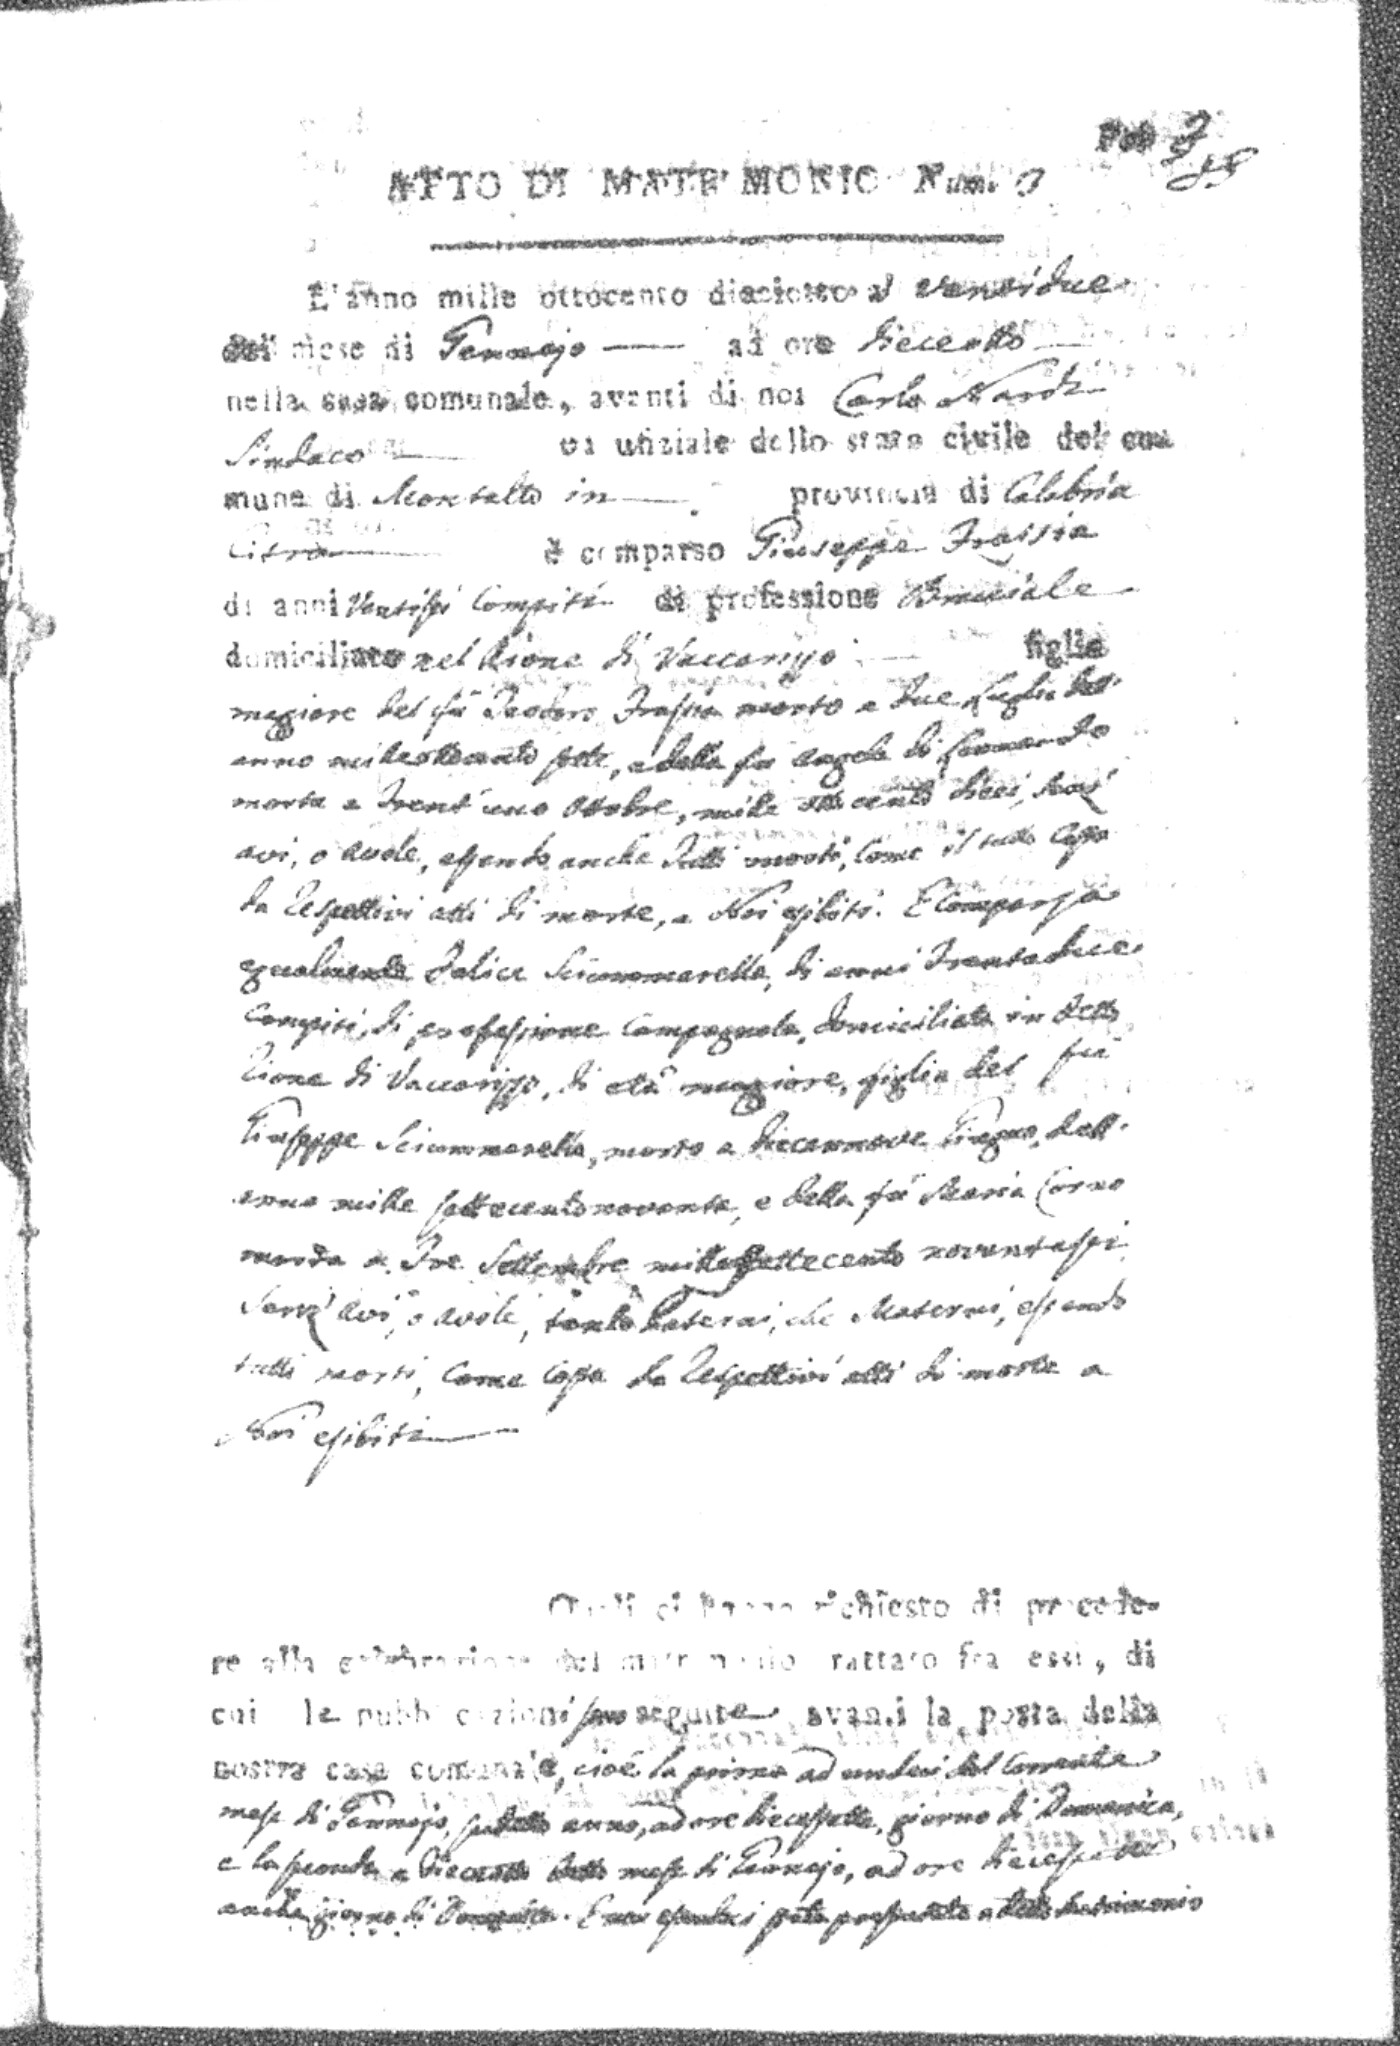 Fol 3
ATTO DI MATRIMONIO Num. 3
L'anno mille ottocento dieciotto a' ventidue
del mese di Gennajo ad ore dieceotto
nella casa comunale, avanti di noi Carlo Nardi
Sindaco ed ufiziale dello stato civile del co
mune di Montalto in provincia di Calabria
Citra è comparso Giuseppe Frassia
di anni Ventisei Compiti di professione Bracciale
domiciliato nel Rione di Vaccarizzo figlio
maggiore del fù Teodoro Frassia morto a due Luglio dell'
anno mille ottocento sette, e della fù Angela di Fernando
morta a trent'uno Ottobre, mille otto cento dieci, senz'
avi, o avole, essendo anche tutti morti, come il tutto costa
da respettivi atti di morte, a Noi esibiti. E comparsa
egualmente Felice Sciammarella, di anni trentadue
compiti, di professione Campagnola, domiciliata in detto
Rione di Vaccarizzo, di età maggiore, figlia del fù
Giuseppe Sciammarella, morto a diecennove Giugno, dell'
anno mille settecento novanta, e della fù Maria Corno
morta a tre Settembre mille settecento novantasei
Senz' avi, o avole, tanto Paterni, che Materni, essendo
tutti morti, come costa da respettivi atti di morte a
Noi esibiti
Quali ci hanno richiesto di procede-
re alla celebrazione del matrimonio trattato fra essi, di
cui le pubblicazioni sono seguite avanti la porta della
nostra casa comunale, cioè la prima ad undeci del corrente
mese di Gennajo, sudetto anno, ad ore diecessette, giorno di Domenica,
e la seconda a dieceotto detto mese di Gennajo, ad ore diecessette
anche giorno di Domenica. E non essendoci stata opposta a detto matrimonio